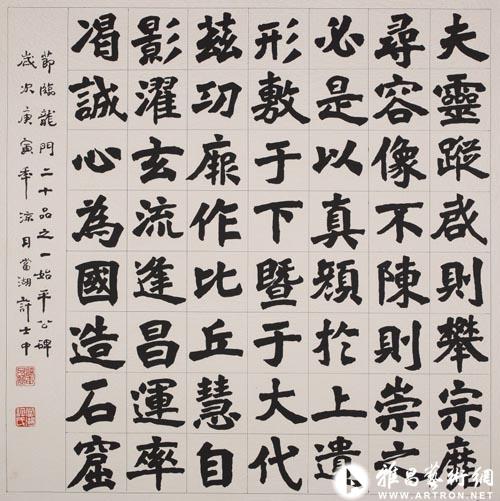 夫靈蹤啟則攀宗靡
尋容像不陳則崇之
必是以真顏於上遺
形敷于下暨于大代
茲功厥作比丘慧自
影濯玄流逢昌運率
渴誠心為國造石窟
節臨龍門二十品之一始平公碑
歲次庚寅年涼月當湖許士中
雅昌藝術網
WWW.ARTRON.NET